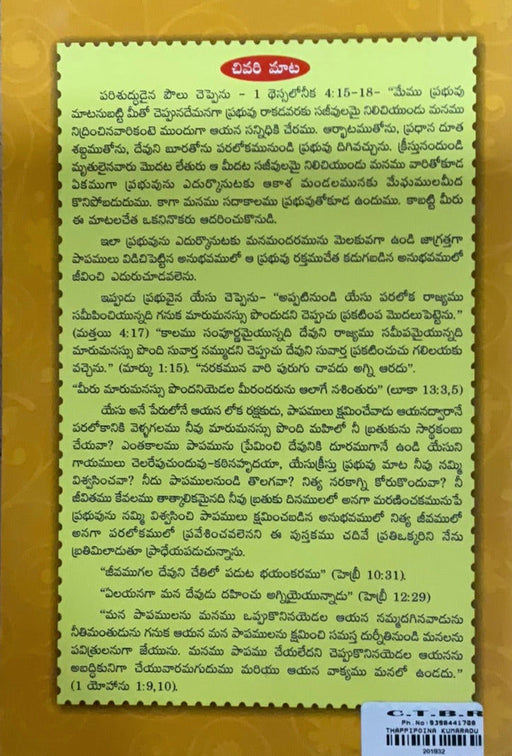 చివరి మాట
పరిశుద్ధుడైన పౌలు చెప్పెను - 1 థెస్సలోనీక 4:15-18- "మేము ప్రభువు
మాటనుబట్టి మీతో చెప్పునదేమనగా ప్రభువు రాకడవరకు సజీవులమై నిలిచియుండు మనము
నిద్రించినవారికంటె ముందుగా ఆయన సన్నిధికి చేరము. ఆర్భాటముతోను, ప్రధాన దూత
శబ్దముతోను, దేవుని బూరతోను పరలోకమునుండి ప్రభువు దిగివచ్చును. క్రీస్తునందుండి
మృతులైనవారు మొదట లేతురు ఆ మీదట సజీవులమై నిలిచియుండు మనము వారితోకూడ
ఏకముగా ప్రభువును ఎదుర్కొనుటకు ఆకాశ మండలమునకు మేఘములమీద
కొనిపోబడుదుము. కాగా మనము సదాకాలము ప్రభువుతోకూడ ఉందుము. కాబట్టి మీరు
ఈ మాటలచేత ఒకనినొకరు ఆదరించుకొనుడి.
ఇలా ప్రభువును ఎదుర్కొనుటకు మనమందరమును మెలకువగా ఉండి జాగ్రత్తగా
పాపములు విడిచిపెట్టిన అనుభవములో ఆ ప్రభువు రక్తముచేత కడుగబడిన అనుభవములో
జీవించి ఎదురుచూడవలెను.
ఇప్పడు ప్రభువైన యేసు చెప్పెను- "అప్పటినుండి యేసు పరలోక రాజ్యము
సమీపించియున్నది గనుక మారుమనస్సు పొందుడని చెప్పుచు ప్రకటింప మొదలుపెట్టెను."
(మత్తయి 4:17) "కాలము సంపూర్ణమైయున్నది దేవుని రాజ్యము సమీపమైయున్నది
మారుమనస్సు పొంది సువార్త నమ్ముడని చెప్పుచు దేవుని సువార్త ప్రకటించుచు గలిలయకు
వచ్చెను." (మార్కు 1:15). "నరకమున వారి పురుగు చావదు అగ్ని ఆరదు".
"మీరు మారుమనస్సు పొందనియెడల మీరందరును ఆలాగే నశింతురు" (లూకా 13:3,5)
యేసు అనే పేరులోనే ఆయన లోక రక్షకుడు, పాపములు క్షమించేవాడు ఆయనద్వారానే
పరలోకానికి వెళ్ళగలము నీవు మారుమనస్సు పొంది మహిలో నీ బ్రతుకును సార్థకంబు
చేయవా? ఎంతకాలము పాపమును ప్రేమించి దేవునికి దూరముగానే ఉండి యేసుని
గాయములు చెలరేపుచుందువు-కఠినహృదయా, యేసుక్రీస్తు ప్రభువు మాట నీవు నమ్మి
విశ్వసించవా? నీదు పాపములనుండి తొలగవా? నిత్య నరకాగ్ని కోరుకొందువా? నీ
జీవితము కేవలము తాత్కాలికమైనది నీవు బ్రతుకు దినములలో అనగా మరణించకమునుపే
ప్రభువును నమ్మి విశ్వసించి పాపములు క్షమించబడిన అనుభవములో నిత్య జీవములో
అనగా పరలోకములో ప్రవేశించవలెనని ఈ పుస్తకము చదివే ప్రతిఒక్కరిని నేను
బ్రతిమిలాడుతూ ప్రాధేయపడుచున్నాను.
"జీవముగల దేవుని చేతిలో పడుట భయంకరము" (హెబ్రీ 10:31).
"ఏలయనగా మన దేవుడు దహించు అగ్నియైయున్నాడు" (హెబ్రీ 12:29)
"మన పాపములను మనము ఒప్పుకొనినయెడల ఆయన నమ్మదగినవాడును
నీతిమంతుడును గనుక ఆయన మన పాపములను క్షమించి సమస్త దుర్నీతినుండి మనలను
పవిత్రులనుగా జేయును. మనము పాపము చేయలేదని చెప్పుకొనినయెడల ఆయనను
అబద్ధికునిగా చేయువారమగుదుము మరియు ఆయన వాక్యము మనలో ఉండదు."
(1 యోహాను 1:9,10).
C.T.B.R
Ph.No:9398441788
THAPPIPOINA KUMARADU
201932